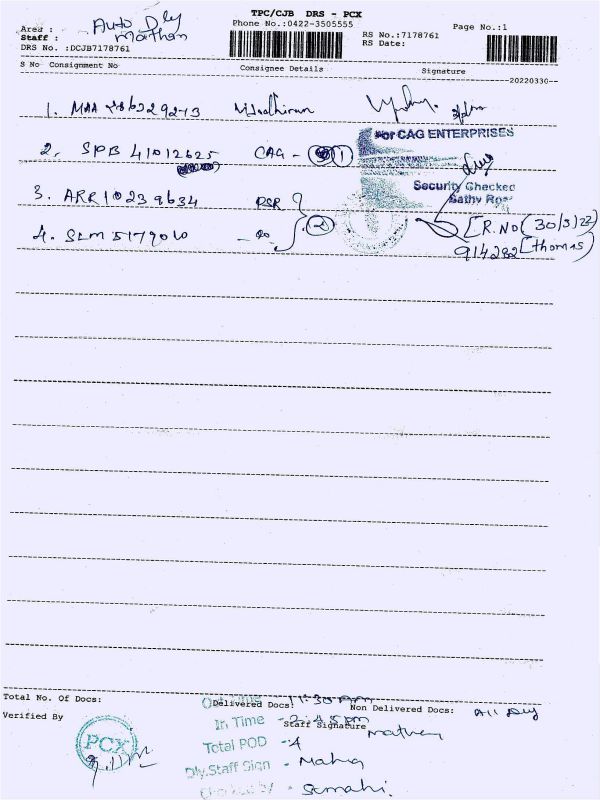 TPC/CJB DRS - PCX
Area : Auto Dly
Phone No.:0422-3505555
Page No.:1
Staff :
RS No.:7178761
DRS No. :DCJB7178761
RS Date:
S No Consignment No Consignee Details Signature
20220330
1.
2. SPB 41012625 CAG - 1
For CAG ENTERPRISES
3. ARR 10239634 PSR
Security Checked
4. SLM 5179010 2
[R.NO (30/3/22)
914282 [thomas)
Total No. Of Docs: Delivered Docs: Non Delivered Docs: All Dly
Out Time 11:30 am
Verified By
In Time - 2:45pm
Staff Signature
PCX
Total POD - 4
Dly.Staff Sign -
Checked by -